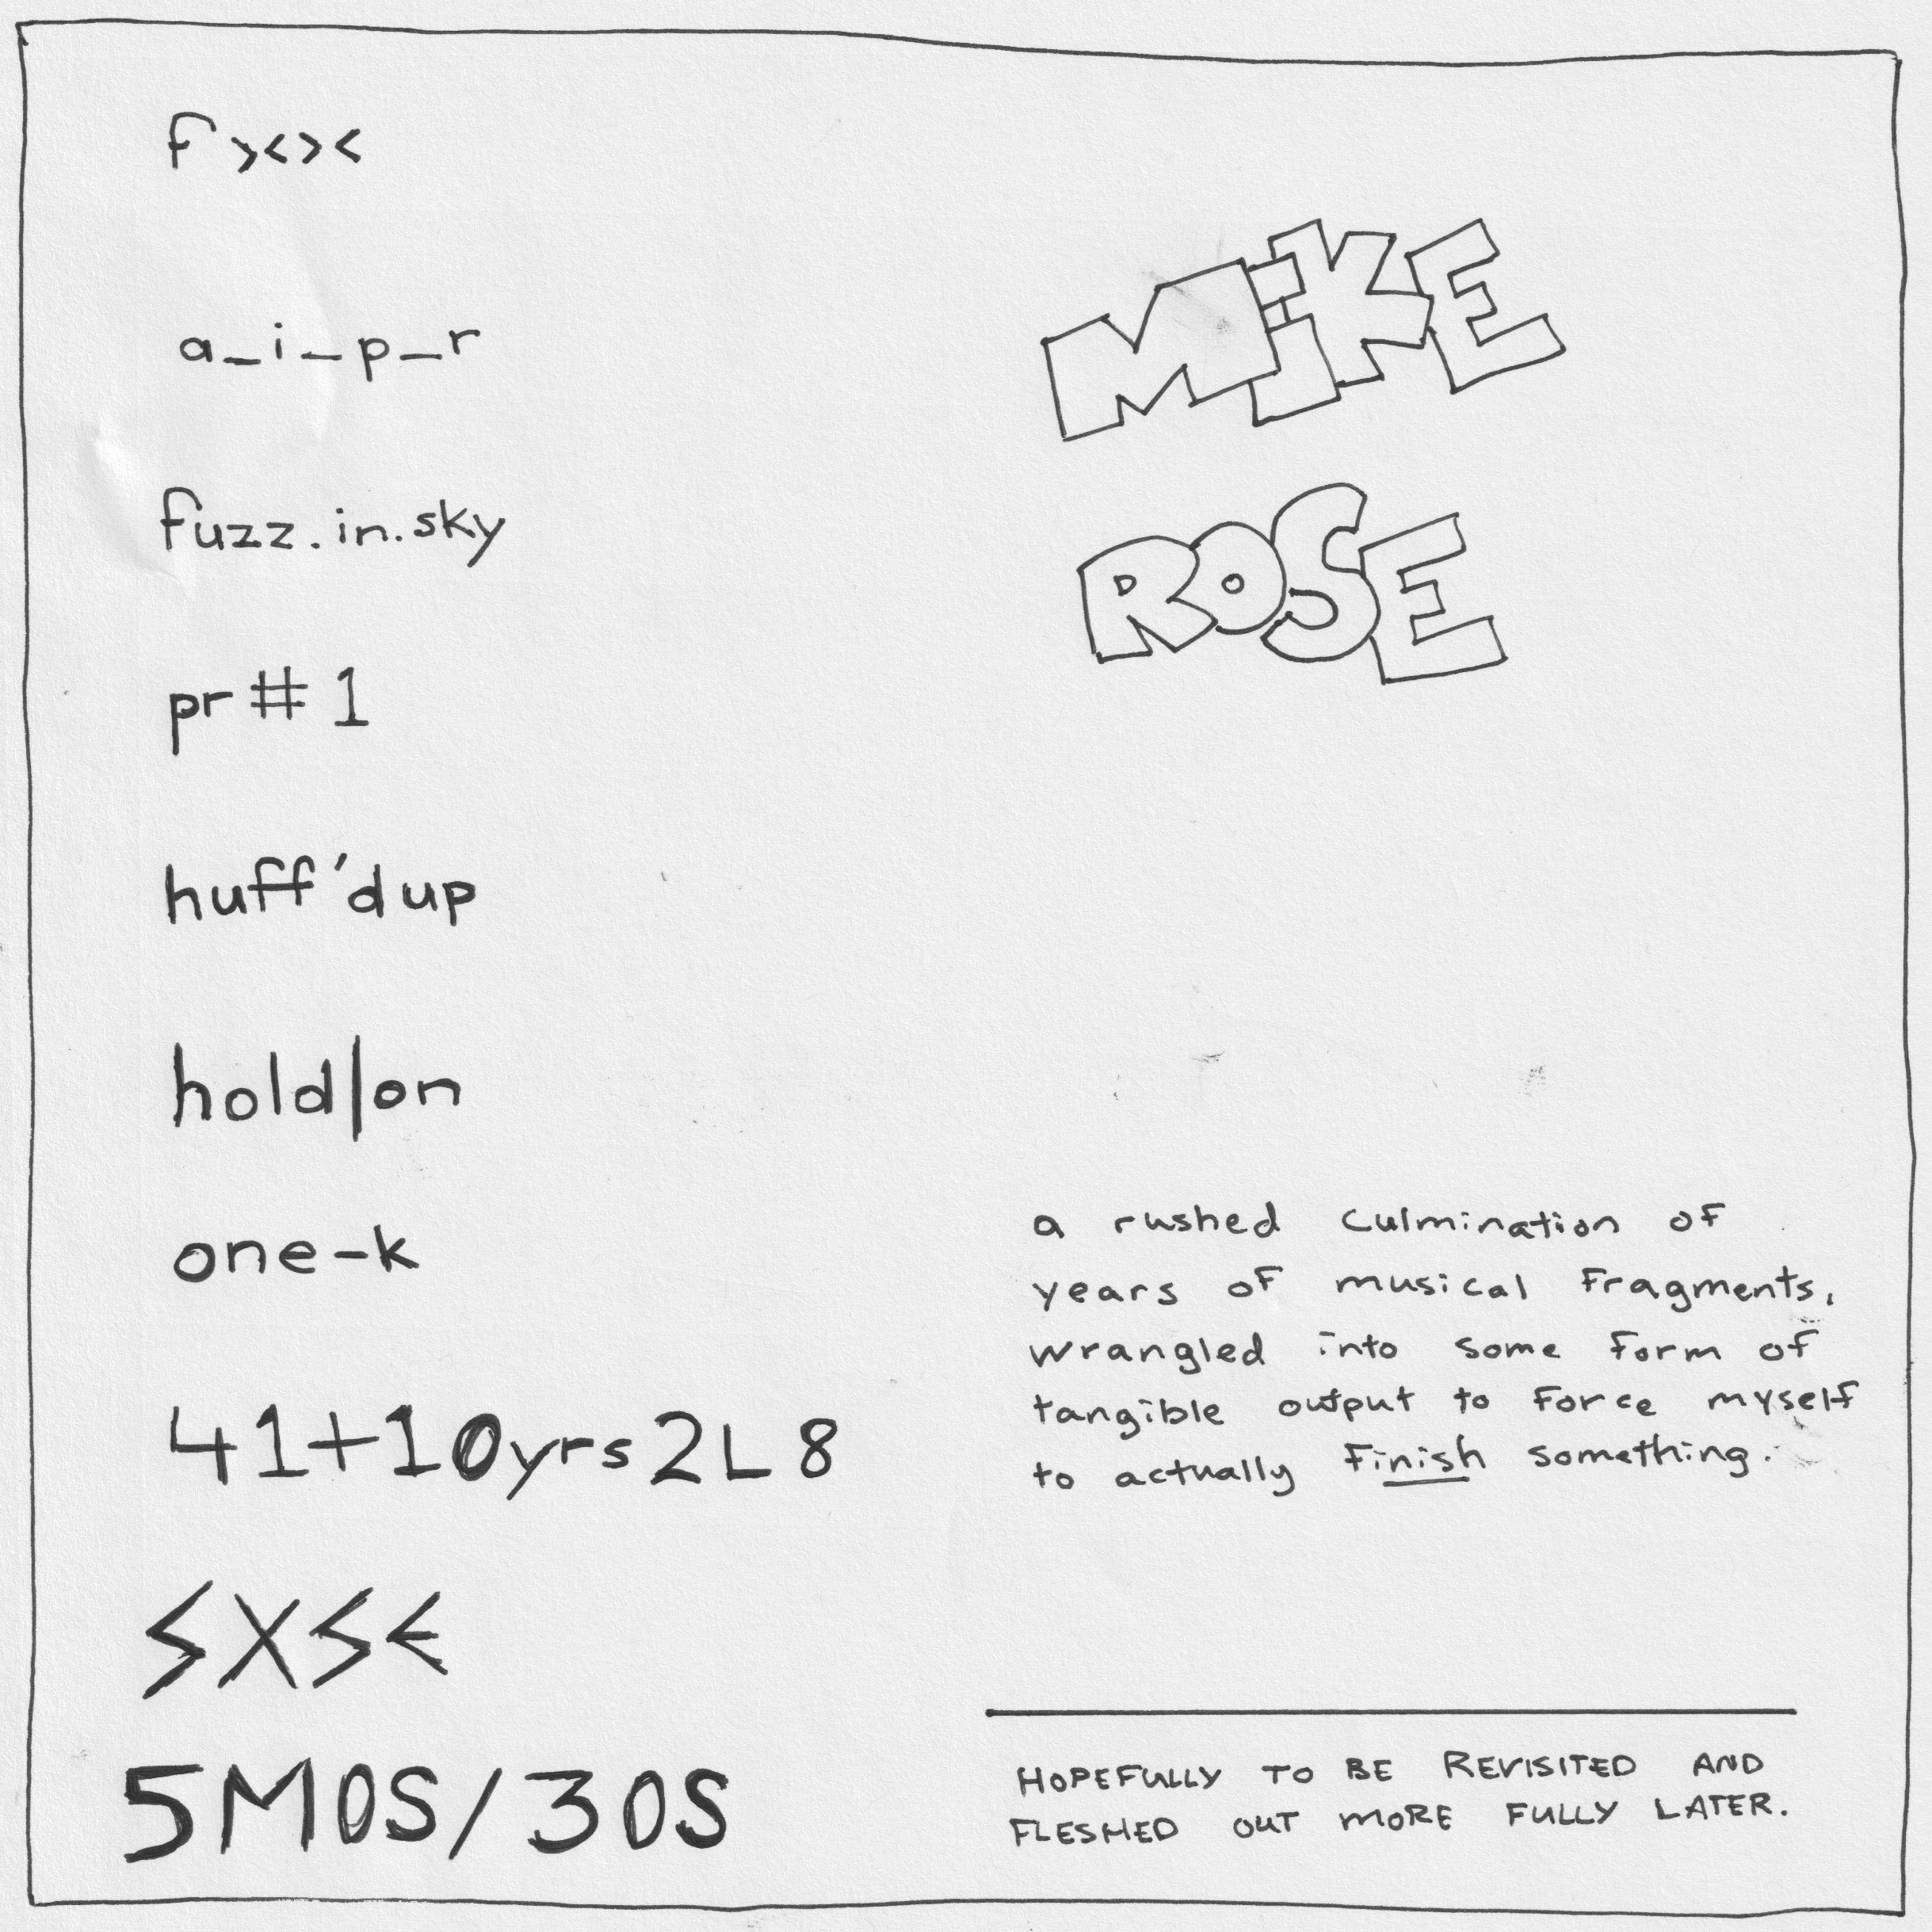 f ><><
a_i_p_r
fuzz.in.sky
pr#1
huff'd up
hold|on
one-k
41+10yrs2L8
SXSE
5M0S/30S
MiKE
ROSE
a rushed culmination of
years of musical fragments,
wrangled into some form of
tangible output to force myself
to actually finish something.
HOPEFULLY TO BE REVISITED AND
FLESHED OUT MORE FULLY LATER.